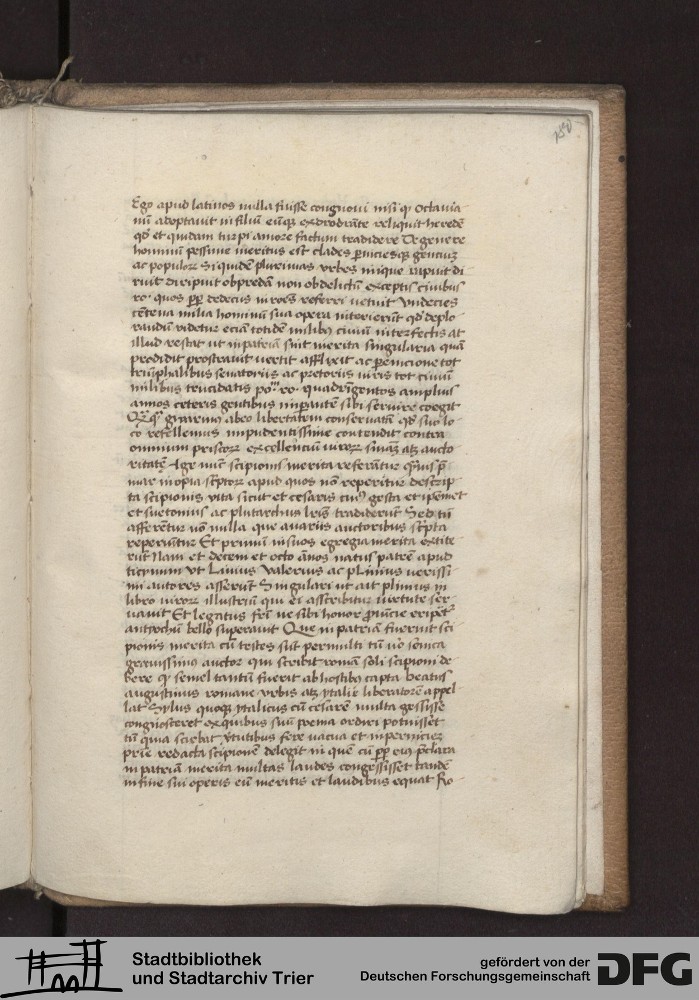 150
Ego apud latinos nulla fuisse congnoui nisi qꝫ octauia
nū adoptauit in filiū eūqꝫ exdodrāte reliquit heredē
qđ et quidam turpi amore factum tradidere De genere
hominū pessime meritus est clades ꝑniciesqꝫ gentiuꝫ
ac populoꝝ Siquidē plurimas vrbes inique rapuit di
ruit diripuit ob predam non ob delictū exceptis ciuibus
ro· quos ꝓꝑ dedecus in roēs referri uetuit Vndecies
cētena milia hominū sua opera interierūt qđ deplo
randū videtur eciā totidē milibꝫ ciuiū interfectis at
illud restat ut in patriā sint merita singularia quā
prodidit prostrauit uertit afflixit ac ꝑemicione tot
triūphalibus senatoriis ac pretoriis uiris tot ciuiū
milibus trucidatis po. ro· quadrīgentos amplius
annos ceteris gentibus imꝑantē sibi seruire coegit
guarinus ab eo libertatem conseruatā qđ suo lo
co refellemus impudentissime contendit contra
omnium priscoꝝ excellenciū uiroꝝ suaꝝ atꝫ aucto
ritatē Age nūc scipionis merita referātur
mar inopia sc̄ptoꝝ apud quos nō reperitur descrip
ta scipionis vita sicut et cesaris cuiꝰ gesta et ipemet
et suetonius ac plutarchus lris̄ tradiderūt Sed tn̄
afferētur nō nulla que a uariis auctoribus sc̄pta
reperiūtur Et primū in suos egregia merita extite
rūt Nam et decem et octo ānos natus patrē apud
ticinum vt Liuius Valerius ac plinius uerissi
mi autores asserūt Singulari ut ait plinius in
libro uiroꝝ illustriū qui ei asscribitur uirtute ser
uauit Et legatus fri ne sibi honor ꝓuincie eriperet
antiochū bello superauit Que in patriā fuerint sci
pionis merita cū testes sūt permulti tū uo seneca
grauissimus auctor qui scribit romā soli scipioni de
bere qꝫ semel tantū fuerit ab hostibꝫ capta beatus
augustinus romane vrbis atqꝫ ytalie liberatorē appel
lat Sylus quoqꝫ ytalicus cū cesarē multa gessisse
congnosceret ex quibus suū poema ordiri potuisset
tū quia sciebat v̄tutibus fere uacua et in perniciēꝫ
prie redacta scipionē delegit in quē cū ꝓꝑ eiꝰ p̄clara
in patriā merita multas laudes congessisset tandē
in fine sui operis eū meritis et laudibus equat Ro
Stadtbibliothek
und Stadtarchiv Trier
gefördert von der
Deutschen Forschungsgemeinschaft
DFG